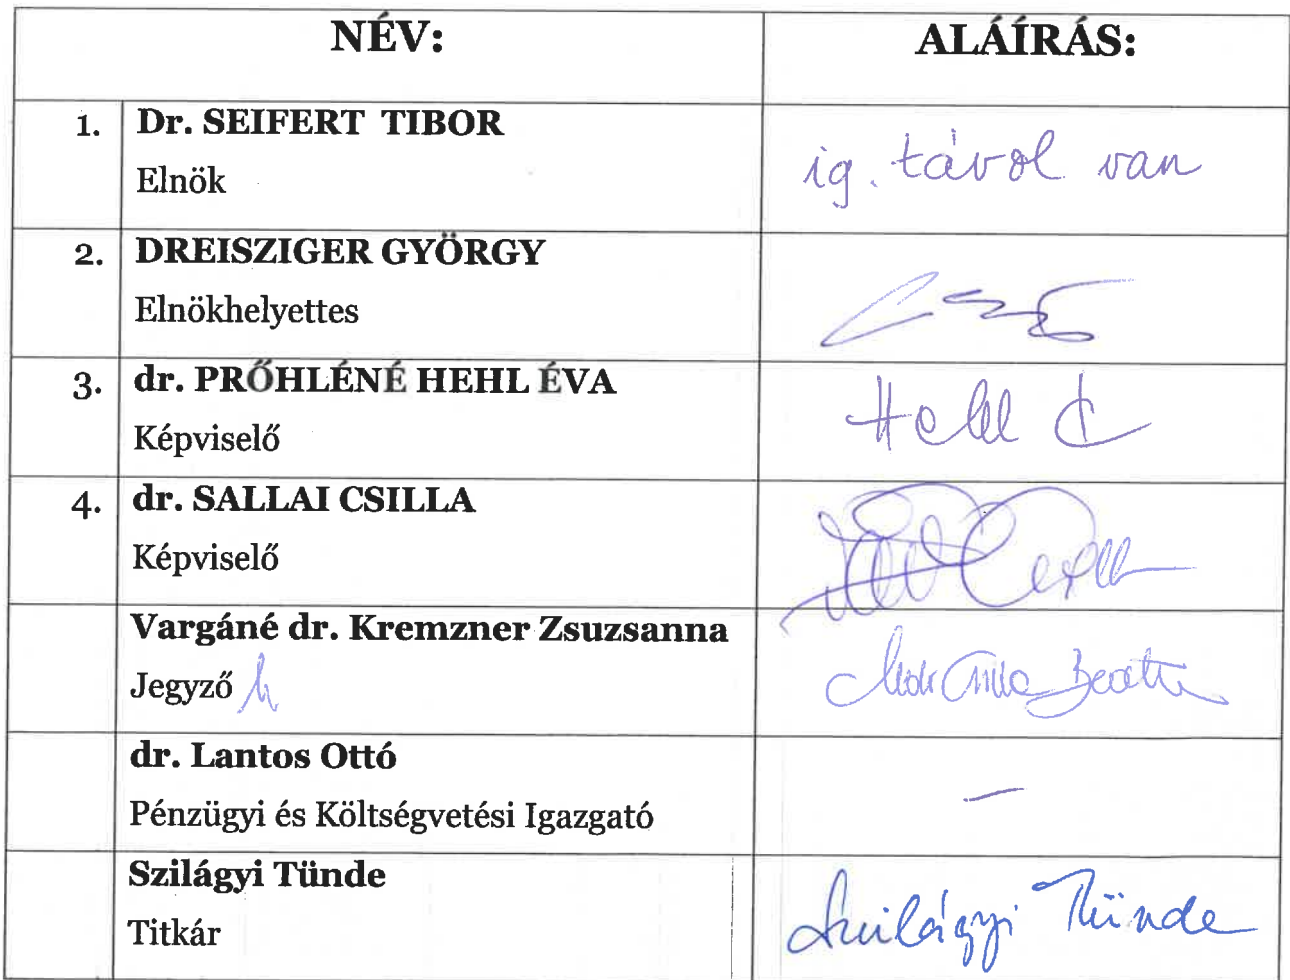 NÉV:
ALÁÍRÁS:
1.
Dr. SEIFERT TIBOR
Elnök
ig. távol van
2.
DREISZIGER GYÖRGY
Elnökhelyettes
3.
dr. PRŐHLÉNÉ HEHL ÉVA
Képviselő
Hehl É
4.
dr. SALLAI CSILLA
Képviselő
Vargáné dr. Kremzner Zsuzsanna
Jegyző h
dr. Lantos Ottó
Pénzügyi és Költségvetési Igazgató
—
Szilágyi Tünde
Titkár
Szilágyi Tünde